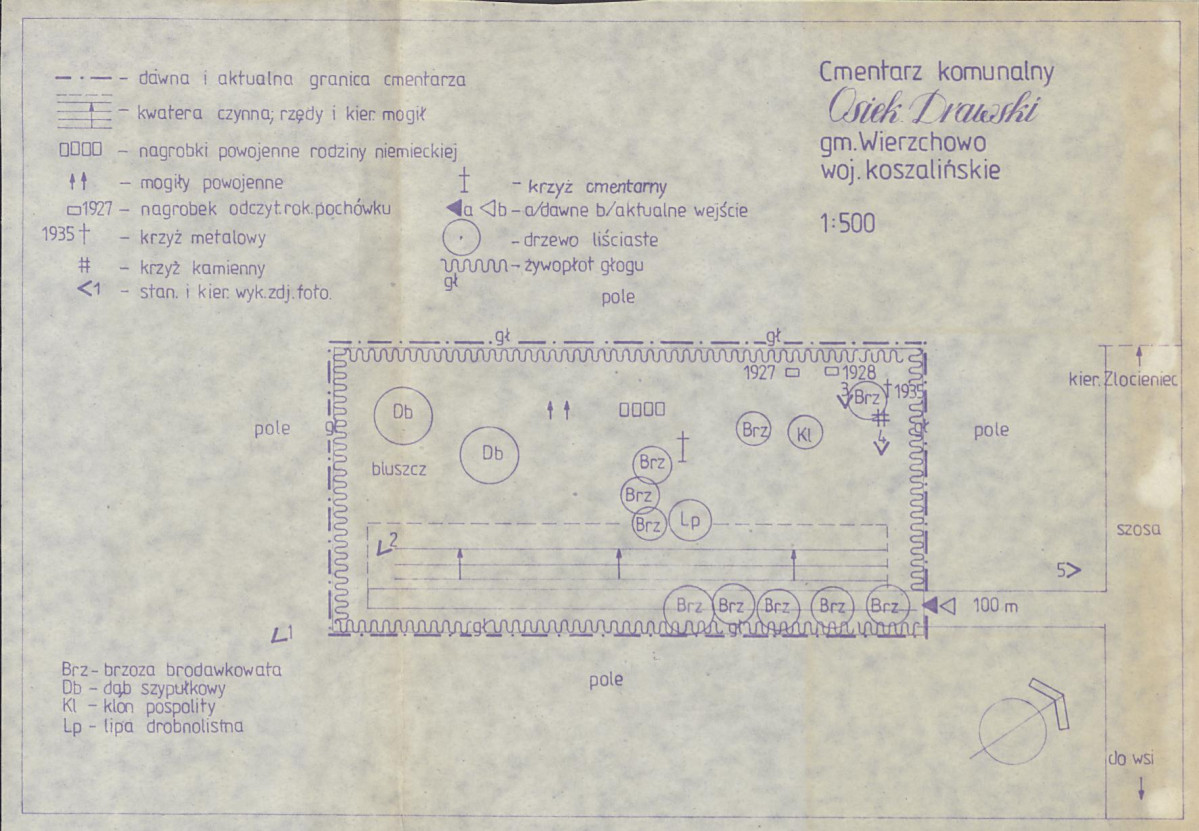 – dawna i aktualna granica cmentarza
– kwatera czynna; rzędy i kier. mogił
– nagrobki powojenne rodziny niemieckiej
– mogiły powojenne
1927 – nagrobek odczyt.rok.pochówku
1935 – krzyż metalowy
– krzyż kamienny
1 – stan. i kier. wyk.zdj.foto.
– krzyż cmentarny
a b – a/dawne b/aktualne wejście
– drzewo liściaste
– żywopłot głogu
gł
Cmentarz komunalny
Osiek Drawski
gm.Wierzchowo
woj.koszalińskie
1:500
pole
gł gł
1927 1928
kier.Złocieniec
3 Brz 1935
Db
pole gł
Brz Kl
4
gł
pole
Db
bluszcz
Brz
Brz
Brz Lp
szosa
2
5
Brz Brz Brz Brz Brz
100 m
gł gł
1
pole
Brz – brzoza brodawkowata
Db – dąb szypułkowy
Kl – klon pospolity
Lp – lipa drobnolistna
do wsi